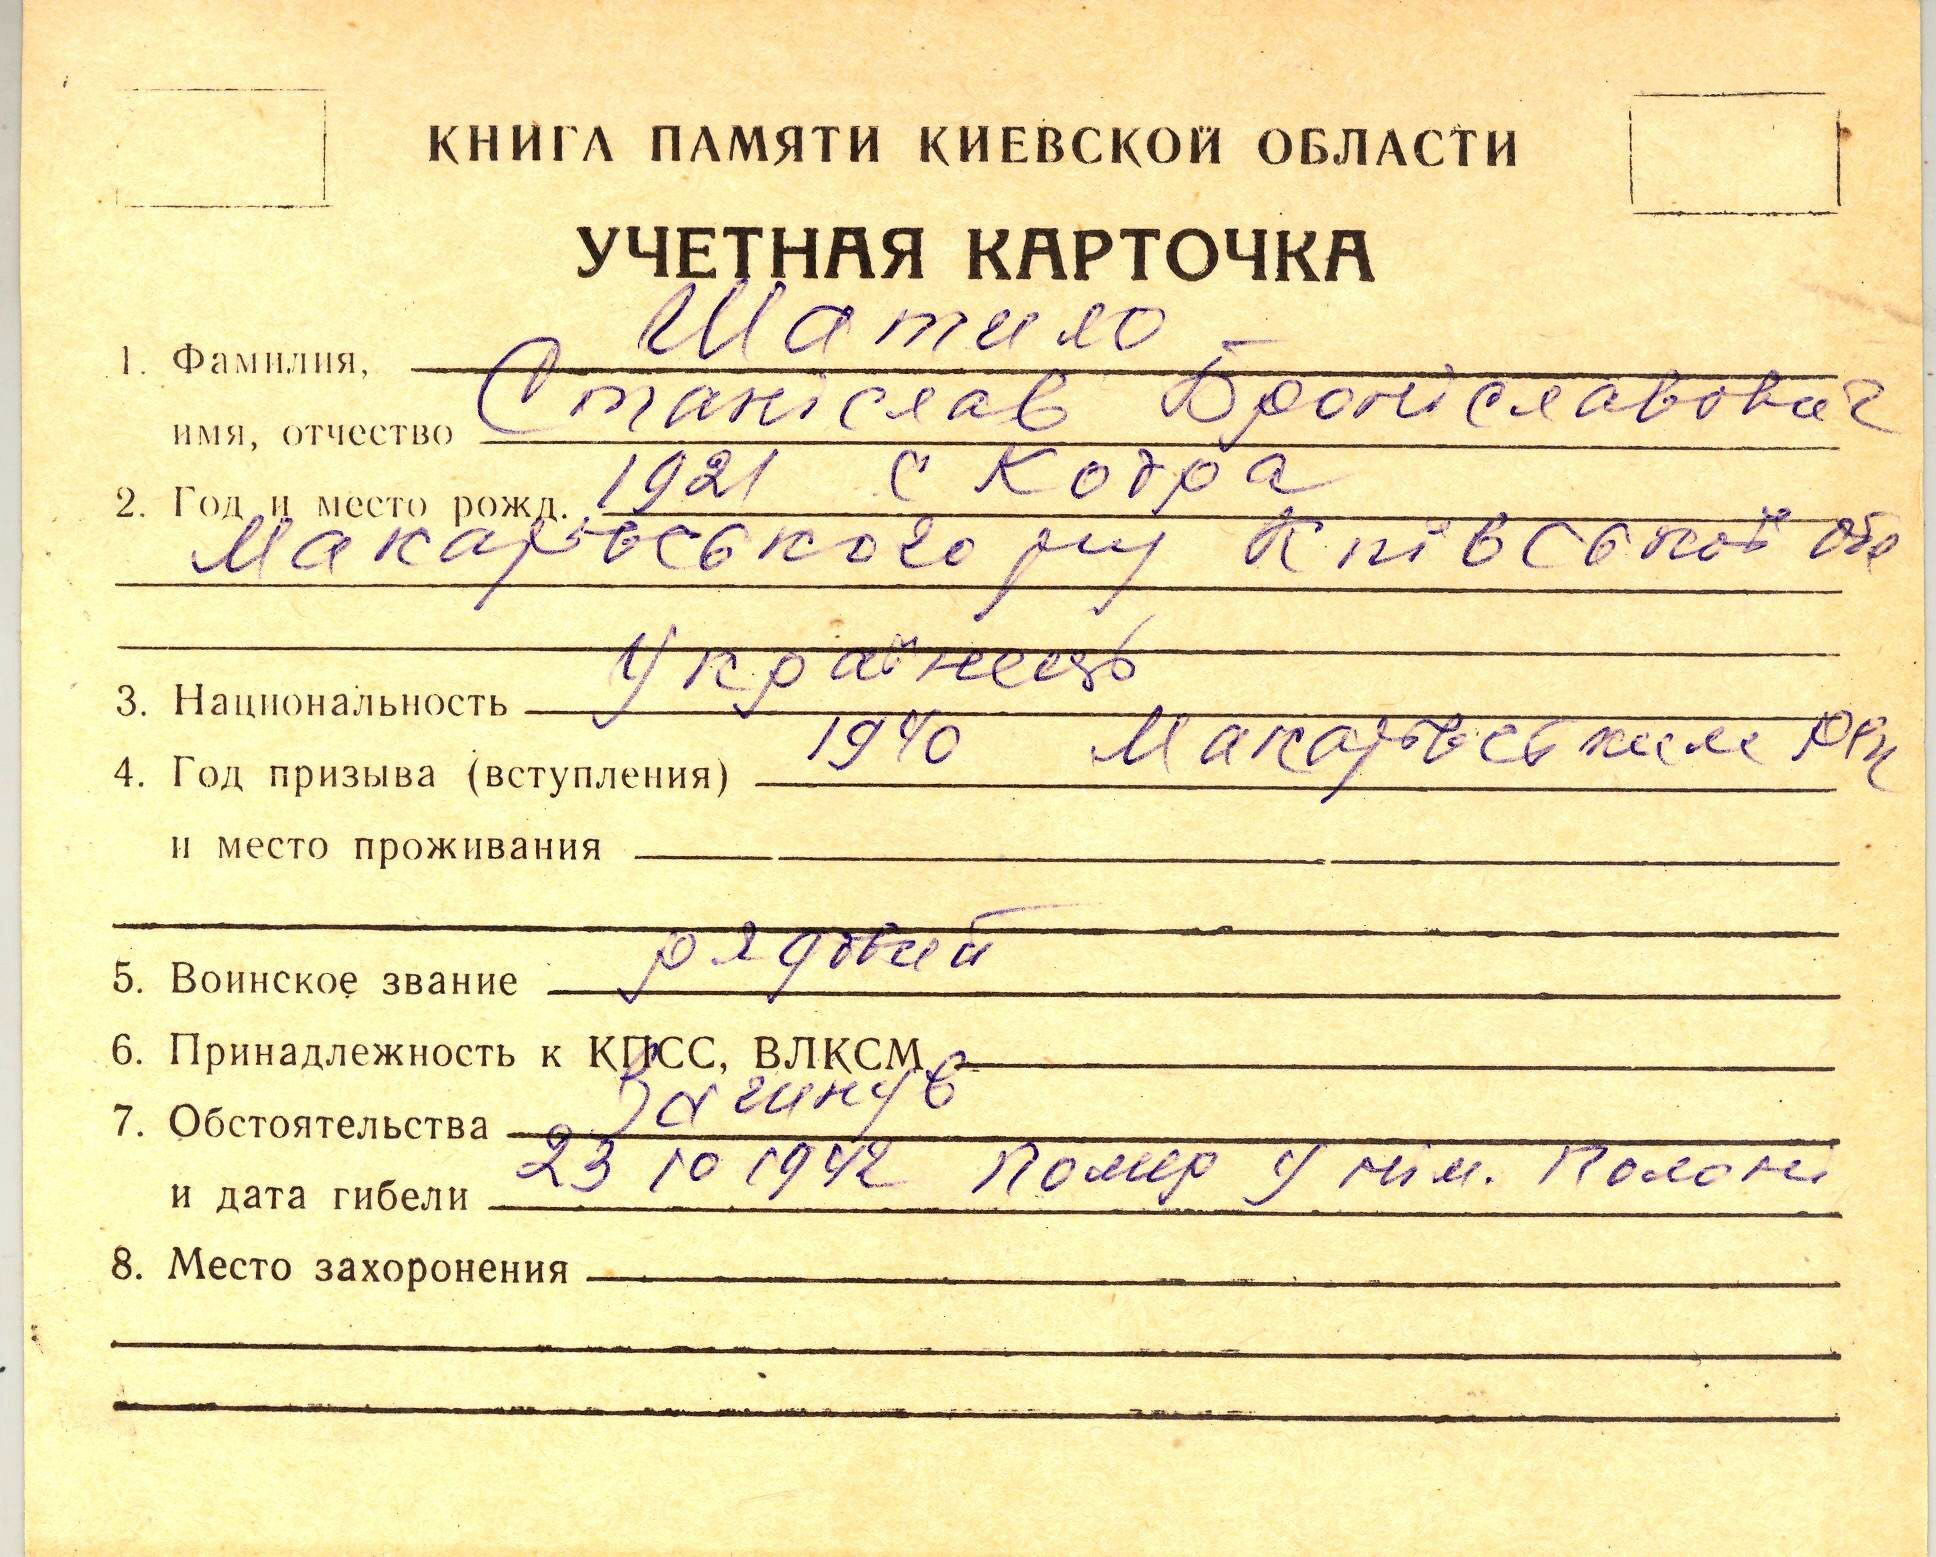 КНИГА ПАМЯТИ КИЕВСКОЙ ОБЛАСТИ
УЧЕТНАЯ КАРТОЧКА
1. Фамилия, Шатило
имя, отчество Станіслав Броніславович
2. Год и место рожд. 1921 с Кодра
Макарівського р-ну Київської обл
3. Национальность Українець
4. Год призыва (вступления) 1940 Макарівським РВК
и место проживания
5. Воинское звание рядовий
6. Принадлежность к КПСС, ВЛКСМ
7. Обстоятельства Загинув
и дата гибели 23 10 1942 Помер у нім. Полоні
8. Место захоронения